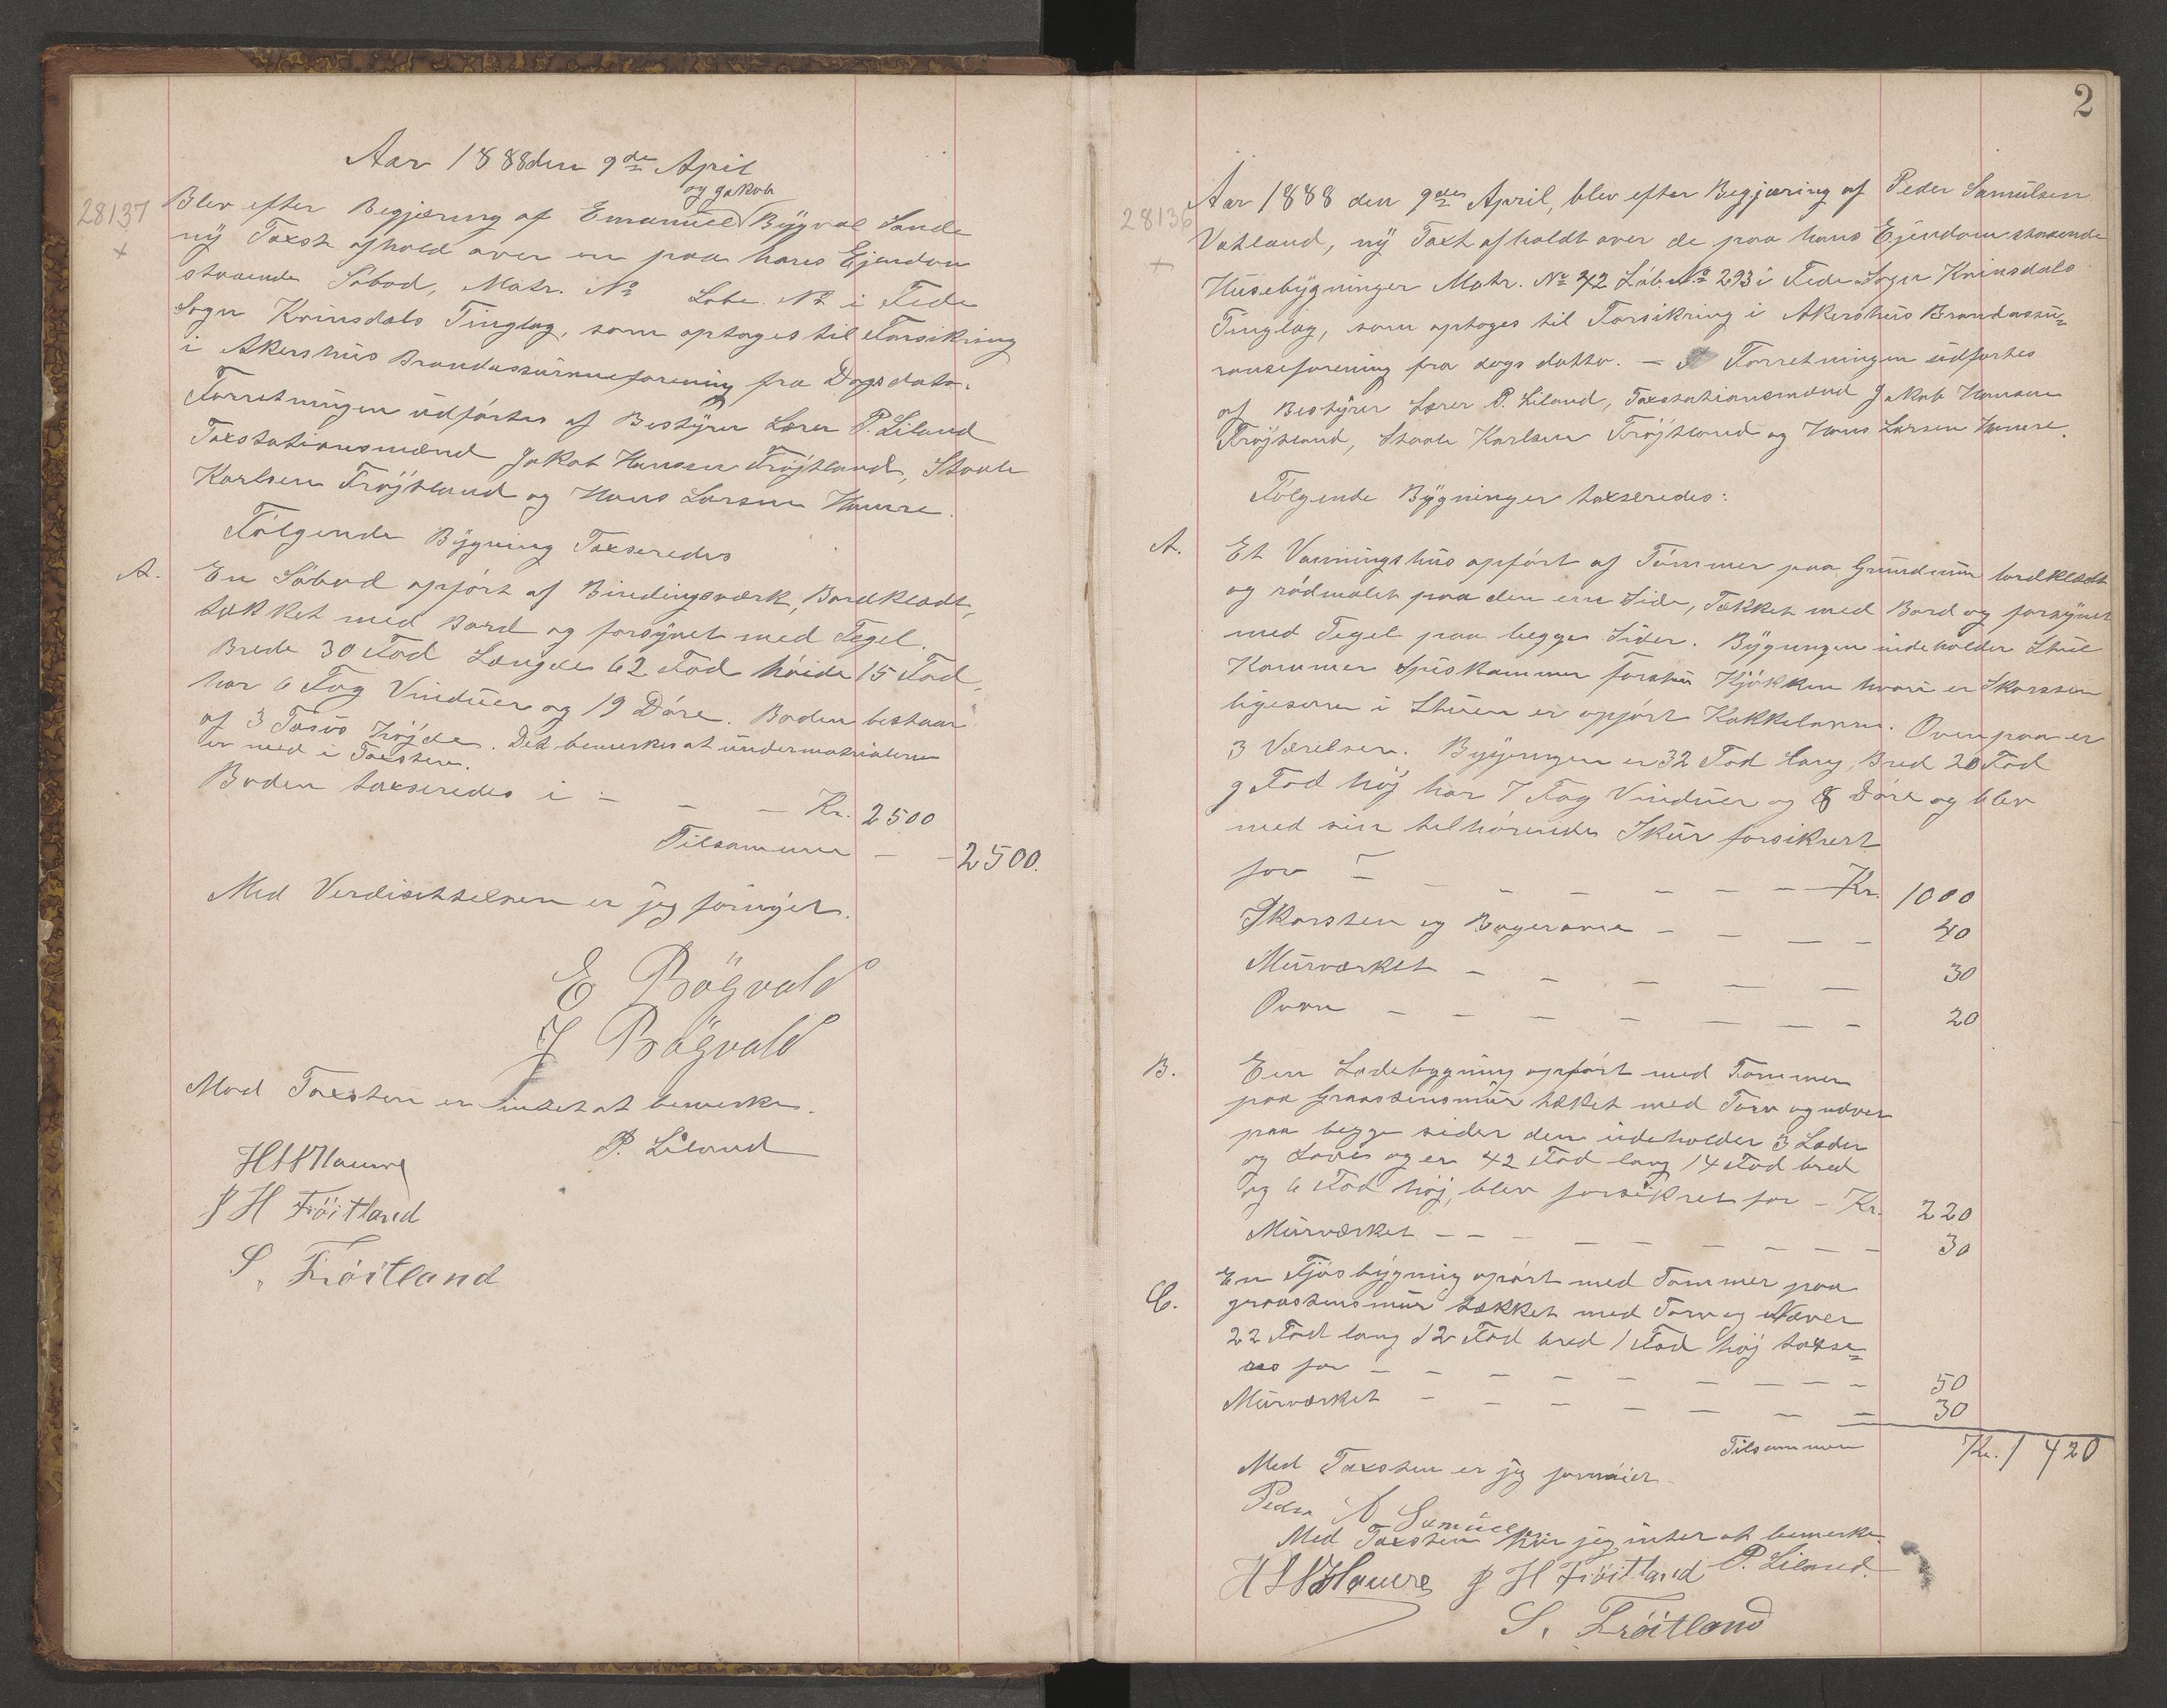 Aar 1888 den 9de April
og Jakob
28137 Blev efter Begjæring af Emanuel Bøgval Sande
ny Taxst afhold over en paa hans Ejendom
staaende Søbod, Matr. No Løbe. No i Fede
Sogn Kvinsdals Tinglag, som optages til Forsikring
i Akershus Brandassuranceforening fra Dags dato.
Forretningen udførtes af Bestyrer Lærer P. Liland
Taxstationsmænd Jakob Hansen Frøjtland, Staale
Karlsen Frøjtland og Hans Larsen Haure.
Følgende Bygning Taxseredes
A. En Søbod opført af Bindingsværk, Bordklædt,
tækket med Bord og forsynet med Tegel.
Brede 30 Fod Længde 62 Fod høide 15 Fod,
har 6 Fag Vinduer og 19 Døre. Boden bestaar
af 3 Højde. Det bemerkes at undermatrialerne
er med i Taxsten.
Boden taxseredes i - - - Kr. 2500
Tilsammen - - 2500.
Med Verdisettelsen er jeg fornøjet.
E Bøgvald
J Bøgvald
Mod Taxsten er intet at bemerke.
P. Liland
H L Haure
J H Frøitland
S. Frøitland
2
28136 Aar 1888 den 9de April, blev efter Begjæring af Peder Samulsen
Vatland, ny Taxt afholdt over de paa hans Ejendom staaende
Husebygninger Matr. No 72 Løb. No 293 i Fede Sogn Kvinsdals
Tinglag, som optages til Forsikring i Akershus Brandassu=
ranseforening fra dags datto. - Forretningen udførtes
af Bestyrer Lærer P. Liland, Taxstationsmænd Jakob Hansen
Frøjtland, Staale Karlsen Frøjtland og Hans Larsen Haure.
Følgende Bygninger taxseredes:
A. Et Vaaningshus opført af Tømmer paa Grundmur bordklædt
og rødmalet paa den ene Side, Tækket med Bord og forsynet
med Tegel paa begge Sider. Bygningen indeholder Stue
Kammer Spiskammer forstu Kjøkken hvori er Skorsten
ligesom i Stuen er opført Kakkelovn. Ovenpaa er
3 Værelser. Bygningen er 32 Fod lang, Bred 20 Fod
9 Fod høj har 7 Fag Vinduer og 8 Døre og blev
med sin tilhørende Skur forsikrert
for - - - - - - - Kr. 1000
Skorsten og Bagerovn - - - - 40
Murværket - - - - - 30
Ovne - - - - - - - 20
B. Een Ladebygning opført med Tømmer
paa Graastensmur tæket med Torv og næver
paa begge sider den indeholder 3 Lader
og Løvei og er 42 Fod lang 14 Fod bred
og 6 Fod høj, blev forsikret for - Kr. 220
Murværket - - - - - - - - - 30
C. En Fjøsbygning opørt med Tømmer paa
graastensmur tækket med Torv og Næver
22 Fod lang 12 Fod bred 1 Fod høj taxse=
res for - - - - - - - - - 50
Murværket - - - - - - - 30
Tilsammen Kr. 1420
Med Taxsten er jeg fornøiet
Peder Samuelsen
Med Taxsten har jeg intet at bemerke.
H L Haure J H Frøitland P. Liland.
S. Frøitland